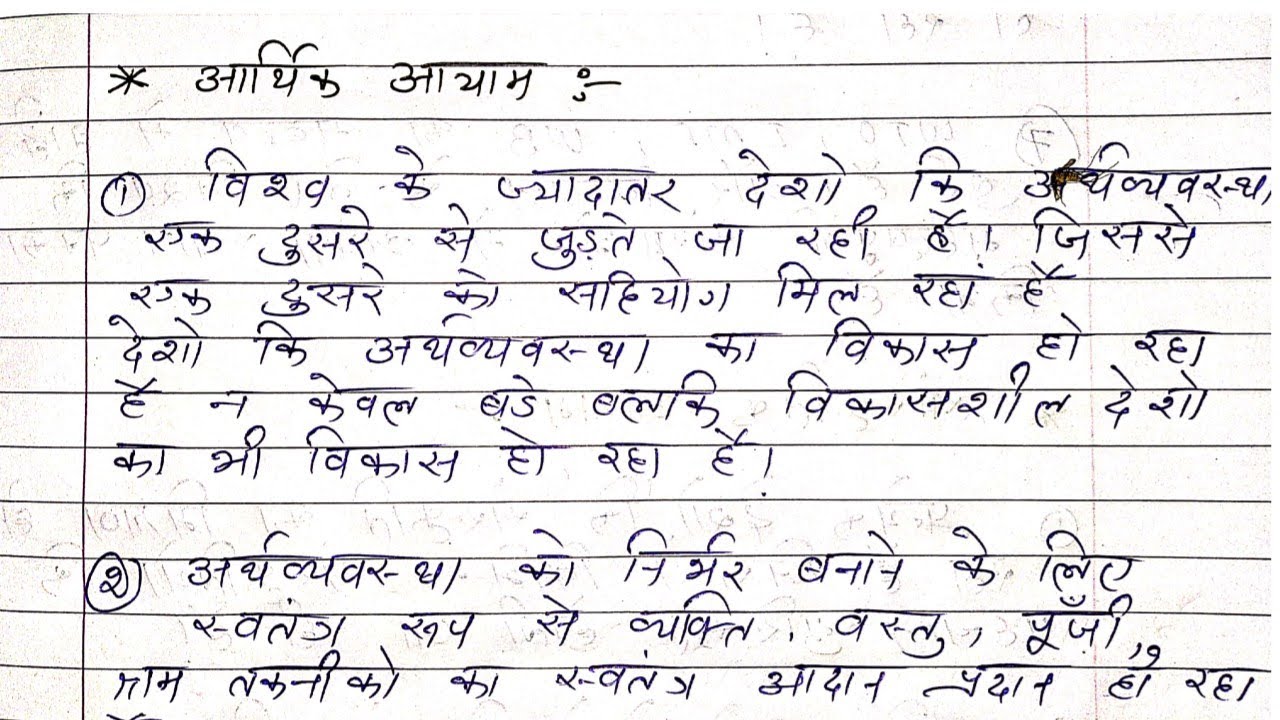 * आर्थिक आयाम :-
① विश्व के ज्यादातर देशो कि अर्थव्यवस्था
एक दुसरे से जुड़ते जा रही है। जिससे
एक दुसरे को सहियोग मिल रहां है
देशो कि अर्थव्यवस्था का विकास हो रहा
है न केवल बडे बलकि विकासशील देशो
का भी विकास हो रहा है।
② अर्थव्यवस्था को निर्भर बनाने के लिए
स्वतंत्र रूप से व्यक्ति, वस्तु, पूँजी,
श्रम तकनीको का स्वतंत्र आदान प्रदान हो रहा